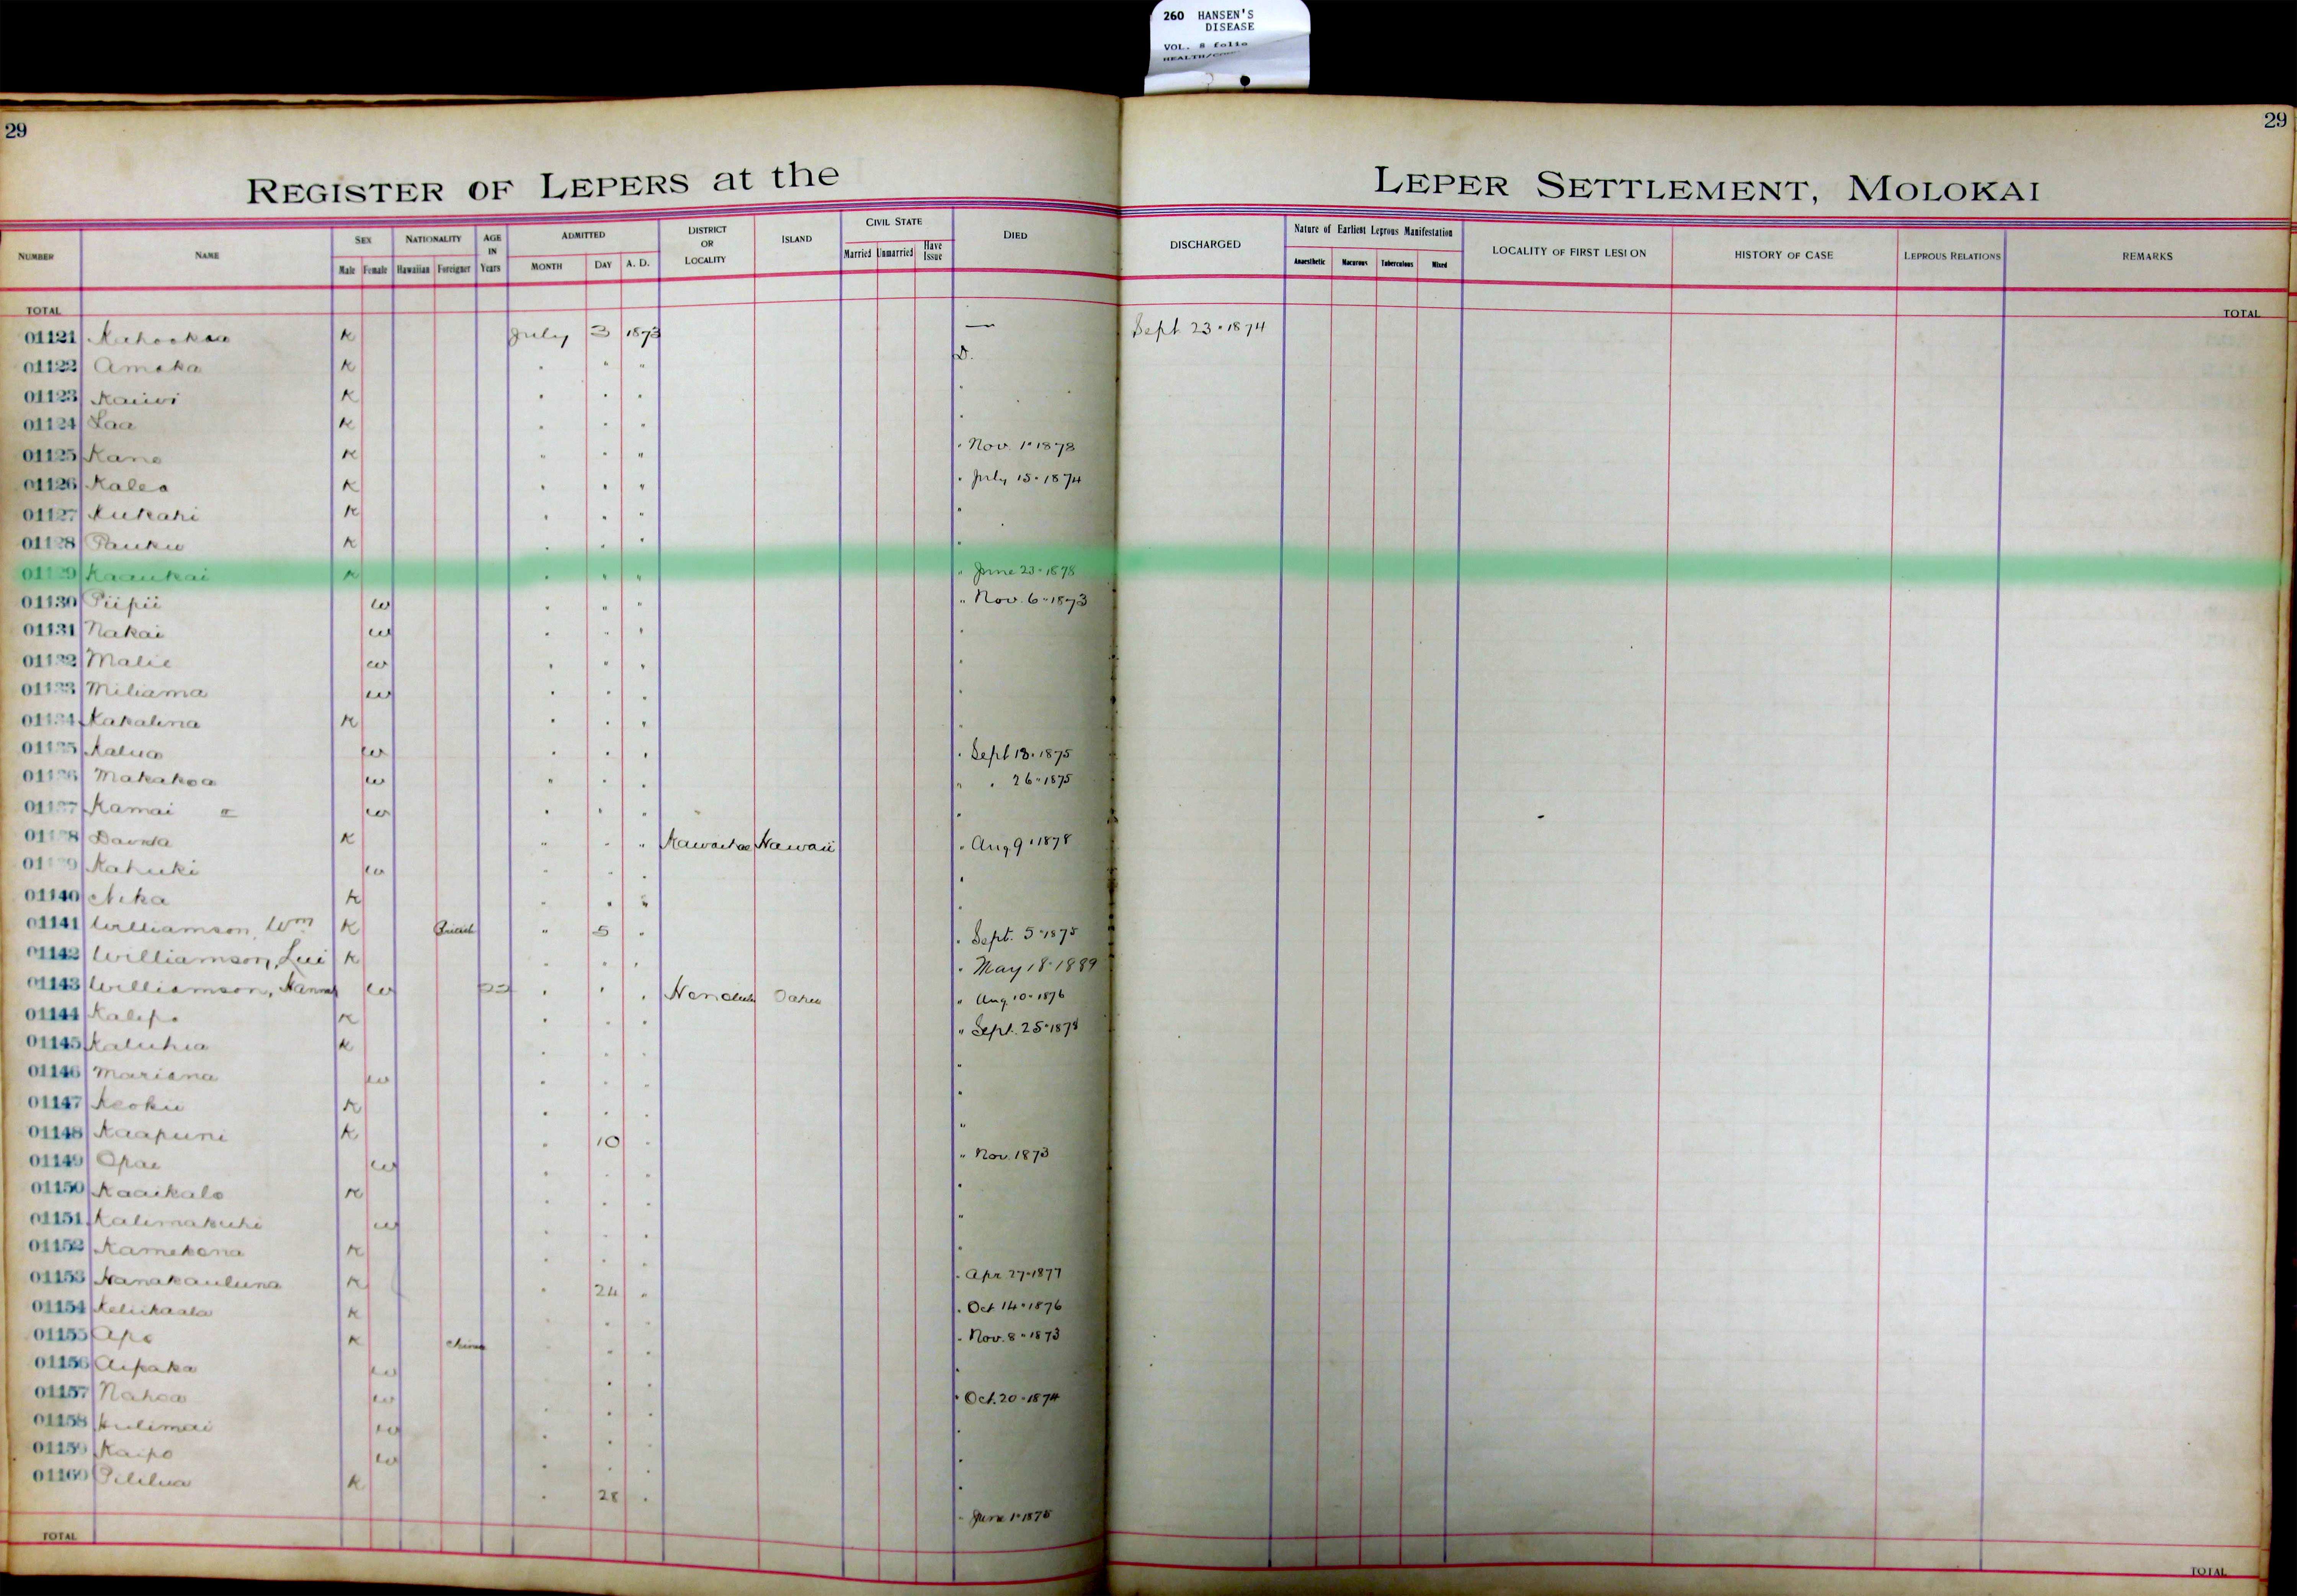 260 HANSEN'S
DISEASE
VOL. 8 folio
29
29
REGISTER OF LEPERS at the LEPER SETTLEMENT, MOLOKAI
NUMBER NAME SEX Male Female NATIONALITY Hawaiian Foreigner AGE IN Years ADMITTED MONTH DAY A. D. DISTRICT OR LOCALITY ISLAND CIVIL STATE Married Unmarried Have Issue DIED DISCHARGED Nature of Earliest Leprous Manifestation Anaesthetic Macurous Tuberculous Mixed LOCALITY OF FIRST LESION HISTORY OF CASE LEPROUS RELATIONS REMARKS
TOTAL TOTAL
01121 K July 3 1873 — Sept 23 · 1874
01122 Amaka K " " " D.
01123 Kaiwi K " " " "
01124 Laa K " " " "
01125 Kane K " " " " Nov. 1 · 1878
01126 Kalea K " " " " July 15 · 1874
01127 Kukahi K " " " "
01128 Pauku K " " " "
01129 Kaaukai K " " " " June 23 · 1878
01130 Piipii w " " " " Nov. 6 · 1873
01131 Nakai w " " " "
01132 Malie w " " " "
01133 Miliama w " " " "
01134 Kakalina K " " " "
01135 Kalua w " " " " Sept 18 · 1875
01136 Makakoa w " " " " " 26 · 1875
01137 Kamai w " " " "
01138 K " " " Kawaihae Hawaii " Aug 9 · 1878
01139 Kahuki w " " " "
01140 Nika K " " " "
01141 Williamson, Wm K British " 5 " " Sept. 5 · 1875
01142 Williamson, Lui K " " " " May 18 · 1889
01143 Williamson, Hannah w " " " Honolulu Oahu " Aug. 10 · 1876
01144 Kalepo K " " " " Sept. 25 · 1878
01145 Kaluhia K " " " "
01146 Mariana w " " " "
01147 Keoku K " " " "
01148 Kaapuni K " 10 " "
01149 Opae w " " " " Nov. 1873
01150 Kaaikalo K " " " "
01151 Kalimakuhi w " " " "
01152 Kamekona K " " " "
01153 Nanakauluna K " 24 " " Apr 27 · 1877
01154 Keliikaala K " " " " Oct 14 · 1876
01155 Apo K China " " " Nov. 8 · 1873
01156 Aipaka w " " " "
01157 Nahoa w " " " " Oct. 20 · 1874
01158 Kulimai w " " " "
01159 Kaipo w " " " "
01160 Pililua K " 28 " " June 1 · 1875
TOTAL TOTAL